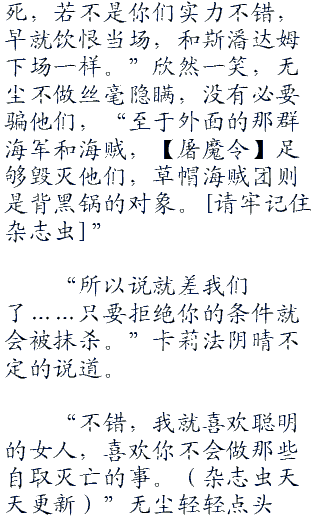 死，若不是你们实力不错，
早就饮恨当场，和斯潘达姆
下场一样。”欣然一笑，无
尘不做丝毫隐瞒，没有必要
骗他们，“至于外面的那群
海军和海贼，【屠魔令】足
够毁灭他们，草帽海贼团则
是背黑锅的对象。[请牢记住
杂志虫]”
“所以说就差我们
了……只要拒绝你的条件就
会被抹杀。”卡莉法阴晴不
定的说道。
“不错，我就喜欢聪明
的女人，喜欢你不会做那些
自取灭亡的事。（杂志虫天
天更新）”无尘轻轻点头